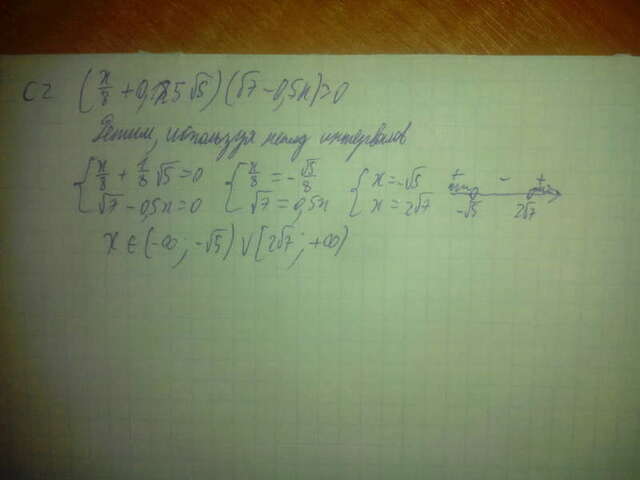 C2 (x/8 + 0,125√5)(√7 - 0,5x) > 0
Решим, используя метод интервалов
{ x/8 + 1/8 √5 = 0 { x/8 = -√5/8 { x = -√5 + - +
√7 - 0,5x = 0 √7 = 0,5x x = 2√7 -√5 2√7
x ∈ (-∞; -√5) ∪ [2√7; +∞)